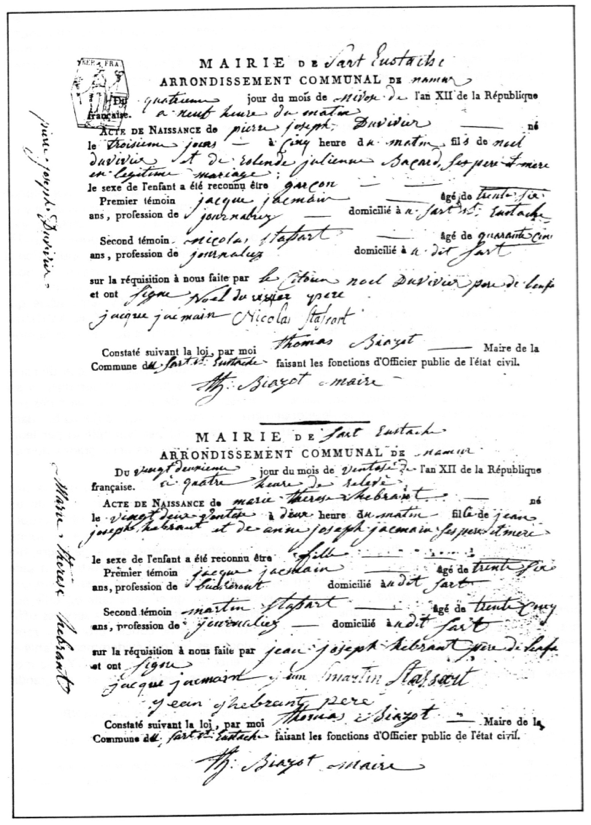 MAIRIE DE Sart Eustache
ARRONDISSEMENT COMMUNAL DE namur
Du quatrieme jour du mois de nivose de l'an XII de la République
française. a neuf heure du matin
ACTE DE NAISSANCE de pierre joseph Duvivier né
le troisieme jours à Cinq heure du matin fils de noel
duvivier et de rolende julienne Bacard, ses pere et mere
en legitime mariage;
le sexe de l'enfant a été reconnu être garçon
Premier témoin jacque jacmain âgé de trente six
ans, profession de journalier domicilié à Sart St. Eustache
Second témoin nicolas Stassart âgé de quarante cinq
ans, profession de journalier domicilié à dit Sart
sur la réquisition à nous faite par le Citoien noel Duvivier pere de lenfa
et ont signe Noel du vivier pere
jacque jacmain Nicolas Stassart
Constaté suivant la loi, par moi thomas Biazot Maire de la
Commune du Sart St. Eustache faisant les fonctions d'Officier public de l'état civil.
th: Biazot maire
pierre joseph Duvivier
MAIRIE DE Sart Eustache
ARRONDISSEMENT COMMUNAL DE namur
Du vingt deuxieme jour du mois de ventose de l'an XII de la République
française. à quatre heure de relevé
ACTE DE NAISSANCE de marie therese hebrant né
le vingt deux ventose à deux heure du matin fille de jean
joseph hebrant et de anne joseph jacmain ses pere et mere
le sexe de l'enfant a été reconnu être fille
Premier témoin jacque jacmain âgé de trente six
ans, profession de domicilié à udit Sart
Second témoin martin Stassart âgé de trente cinq
ans, profession de journalier domicilié à udit Sart
sur la réquisition à nous faite par jean joseph hebrant pere de lenfa
et ont signe
jacque jacmain martin Stassart
jean hebrant pere
Constaté suivant la loi, par moi thomas Biazot Maire de la
Commune du Sart St. Eustache faisant les fonctions d'Officier public de l'état civil.
th: Biazot maire
Marie thérèse hebrant